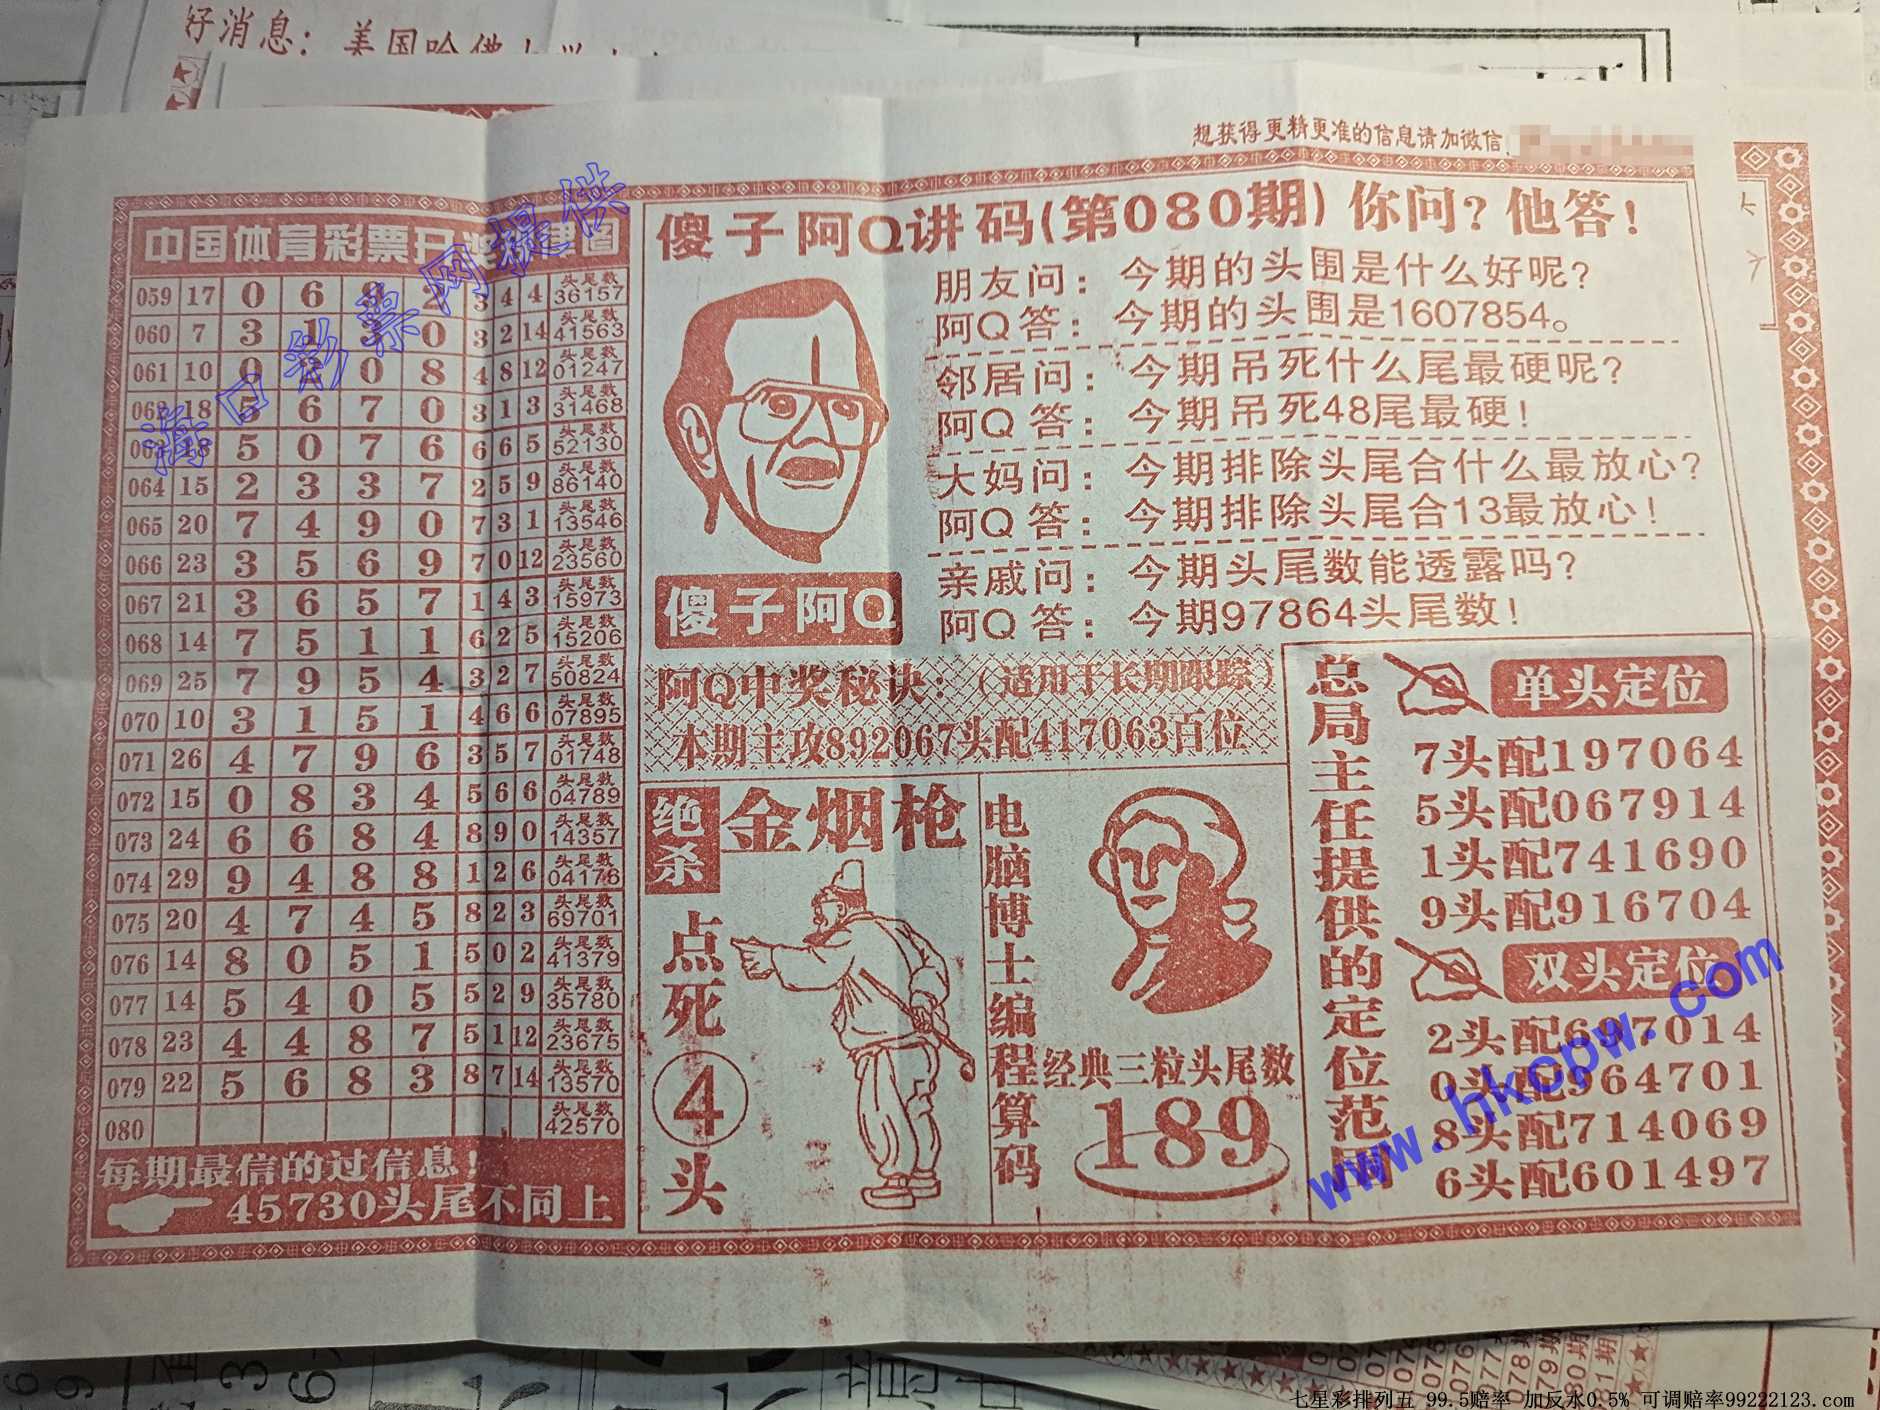 好消息：美国哈佛大
想获得更精更准的信息请加微信
中国体育彩票开奖规律图
059 17 0 6 8 2 3 4 4 头尾数 36157
060 7 3 1 3 0 3 2 14 头尾数 41563
061 10 0 2 0 8 4 8 12 头尾数 01247
062 18 5 6 7 0 3 1 3 头尾数 31468
063 18 5 0 7 6 6 6 5 头尾数 52130
064 15 2 3 3 7 2 5 9 头尾数 86140
065 20 7 4 9 0 7 3 1 头尾数 13546
066 23 3 5 6 9 7 0 12 头尾数 23560
067 21 3 6 5 7 1 4 3 头尾数 15973
068 14 7 5 1 1 6 2 5 头尾数 15206
069 25 7 9 5 4 3 2 7 头尾数 50824
070 10 3 1 5 1 4 6 6 头尾数 07895
071 26 4 7 9 6 3 5 7 头尾数 01748
072 15 0 8 3 4 5 6 6 头尾数 04789
073 24 6 6 8 4 8 9 0 头尾数 14357
074 29 9 4 8 8 1 2 6 头尾数 04176
075 20 4 7 4 5 8 2 3 头尾数 69701
076 14 8 0 5 1 5 0 2 头尾数 41379
077 14 5 4 0 5 5 2 9 头尾数 35780
078 23 4 4 8 7 5 1 12 头尾数 23675
079 22 5 6 8 3 8 7 14 头尾数 13570
080 头尾数 42570
每期最信的过信息！
45730头尾不同上
海口彩票网提供
傻子阿Q讲码(第080期)你问？他答！
朋友问：今期的头围是什么好呢？
阿Q答：今期的头围是1607854。
邻居问：今期吊死什么尾最硬呢？
阿Q答：今期吊死48尾最硬！
大妈问：今期排除头尾合什么最放心？
阿Q答：今期排除头尾合13最放心！
亲戚问：今期头尾数能透露吗？
阿Q答：今期97864头尾数！
傻子阿Q
阿Q中奖秘诀：（适用于长期跟踪）
本期主攻892067头配417063百位
绝杀
金烟枪
点死④头
电脑博士编程算码
经典三粒头尾数
189
总局主任提供的定位范围
单头定位
7头配197064
5头配067914
1头配741690
9头配916704
双头定位
2头配697014
0头配964701
8头配714069
6头配601497
www.hkcpw.com
七星彩排列五 99.5赔率 加反水0.5% 可调赔率99222123.com